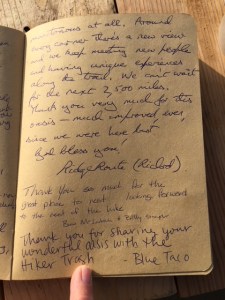 at all. Around
every corner there's a new view
and we keep meeting new people
and having unique experiences
along the trail. We can't wait
for the next 2,500 miles.
Thank you very much for this
oasis - much improved even
since we were here last
God bless you!
RidgeRoute
Thank you so much for the
great place to rest looking forward
to the rest of the hike
Thank you for sharing your
wonderful oasis with the
Hiker Trash - Blue Taco